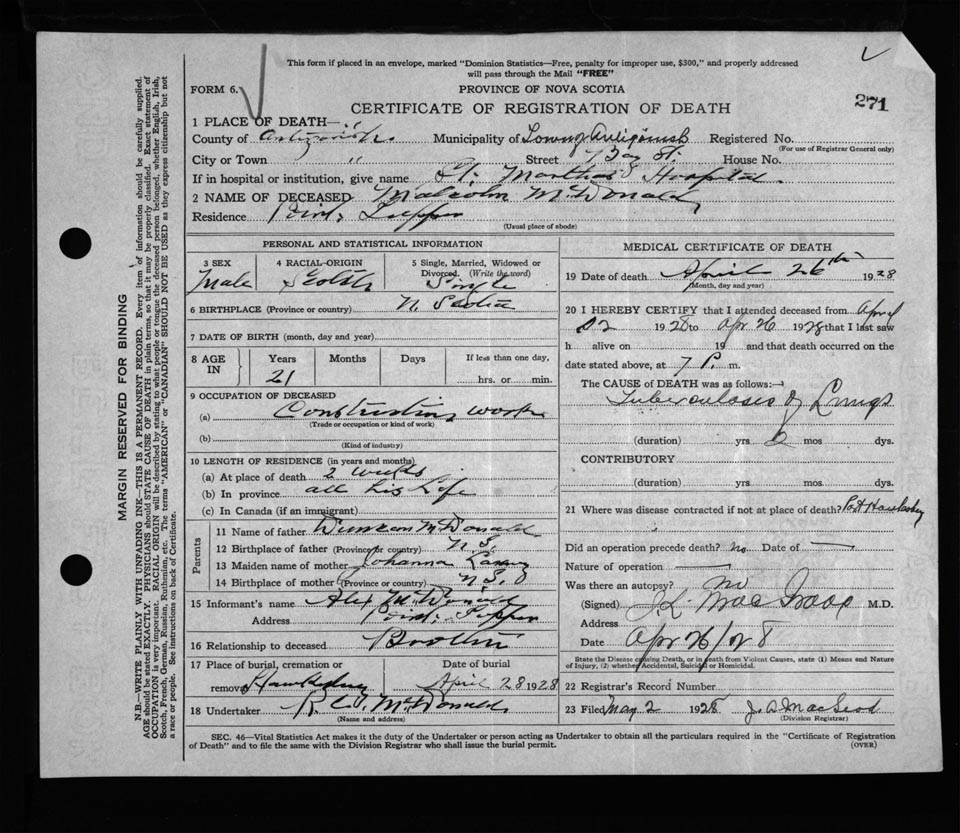 This form if placed in an envelope, marked "Dominion Statistics—Free, penalty for improper use, $300," and properly addressed
will pass through the Mail "FREE"
FORM 6.
PROVINCE OF NOVA SCOTIA
CERTIFICATE OF REGISTRATION OF DEATH
271
1 PLACE OF DEATH—
County of Antigonish Municipality of Town of Antigonish Registered No.
(For use of Registrar General only)
City or Town " Street Bay St. House No.
If in hospital or institution, give name St. Martha's Hospital.
2 NAME OF DECEASED Malcolm McDonald
Residence Point Tupper
(Usual place of abode)
PERSONAL AND STATISTICAL INFORMATION
3 SEX 4 RACIAL-ORIGIN 5 Single, Married, Widowed or Divorced. (Write the word)
Male Scotch Single
6 BIRTHPLACE (Province or country) N. Scotia
7 DATE OF BIRTH (month, day and year)
8 AGE IN Years Months Days If less than one day,
21 hrs. or min.
9 OCCUPATION OF DECEASED
(a) Construction work
(Trade or occupation or kind of work)
(b)
(Kind of industry)
10 LENGTH OF RESIDENCE (in years and months)
(a) At place of death 2 weeks
(b) In province all his life
(c) In Canada (if an immigrant)
Parents
11 Name of father Duncan McDonald
12 Birthplace of father (Province or country) N.S.
13 Maiden name of mother Johanna
14 Birthplace of mother (Province or country) N.S.
15 Informant's name Alex McDonald
Address Point Tupper
16 Relationship to deceased Brother
17 Place of burial, cremation or removal Hawkesbury Date of burial April 28 1928
18 Undertaker McDonald
(Name and address)
MEDICAL CERTIFICATE OF DEATH
19 Date of death April 26th 1928
(Month, day and year)
20 I HEREBY CERTIFY that I attended deceased from April
12 1928 to Apr 26 1928 that I last saw
h alive on 19 and that death occurred on the
date stated above, at 7 P. m.
The CAUSE of DEATH was as follows:—
Tuberculoses of Lungs
(duration) yrs mos dys.
CONTRIBUTORY
(duration) yrs mos dys.
21 Where was disease contracted if not at place of death? Port Hawkesbury
Did an operation precede death? no Date of —
Nature of operation —
Was there an autopsy? no
(Signed) M.D.
Address
Date Apr 26/28
State the Disease causing Death, or in death from Violent Causes, state (1) Means and Nature
of Injury, (2) whether Accidental, Suicidal or Homicidal.
22 Registrar's Record Number
23 Filed May 2 1928 J. A. MacLeod
(Division Registrar)
SEC. 46—Vital Statistics Act makes it the duty of the Undertaker or person acting as Undertaker to obtain all the particulars required in the "Certificate of Registration
of Death" and to file the same with the Division Registrar who shall issue the burial permit. (OVER)
MARGIN RESERVED FOR BINDING
N.B.—WRITE PLAINLY WITH UNFADING INK—THIS IS A PERMANENT RECORD. Every item of information should be carefully supplied.
AGE should be stated EXACTLY. PHYSICIANS should STATE CAUSE OF DEATH in plain terms, so that it may be properly classified. Exact statement of
OCCUPATION is very important. RACIAL ORIGIN will be described by stating to what people or tongue the deceased person belonged, whether English, Irish,
Scotch, French, German, Russian, Ruthenian, etc. The terms "AMERICAN" or "CANADIAN" SHOULD NOT BE USED as they express citizenship but not
a race or people. See instructions on back of Certificate.